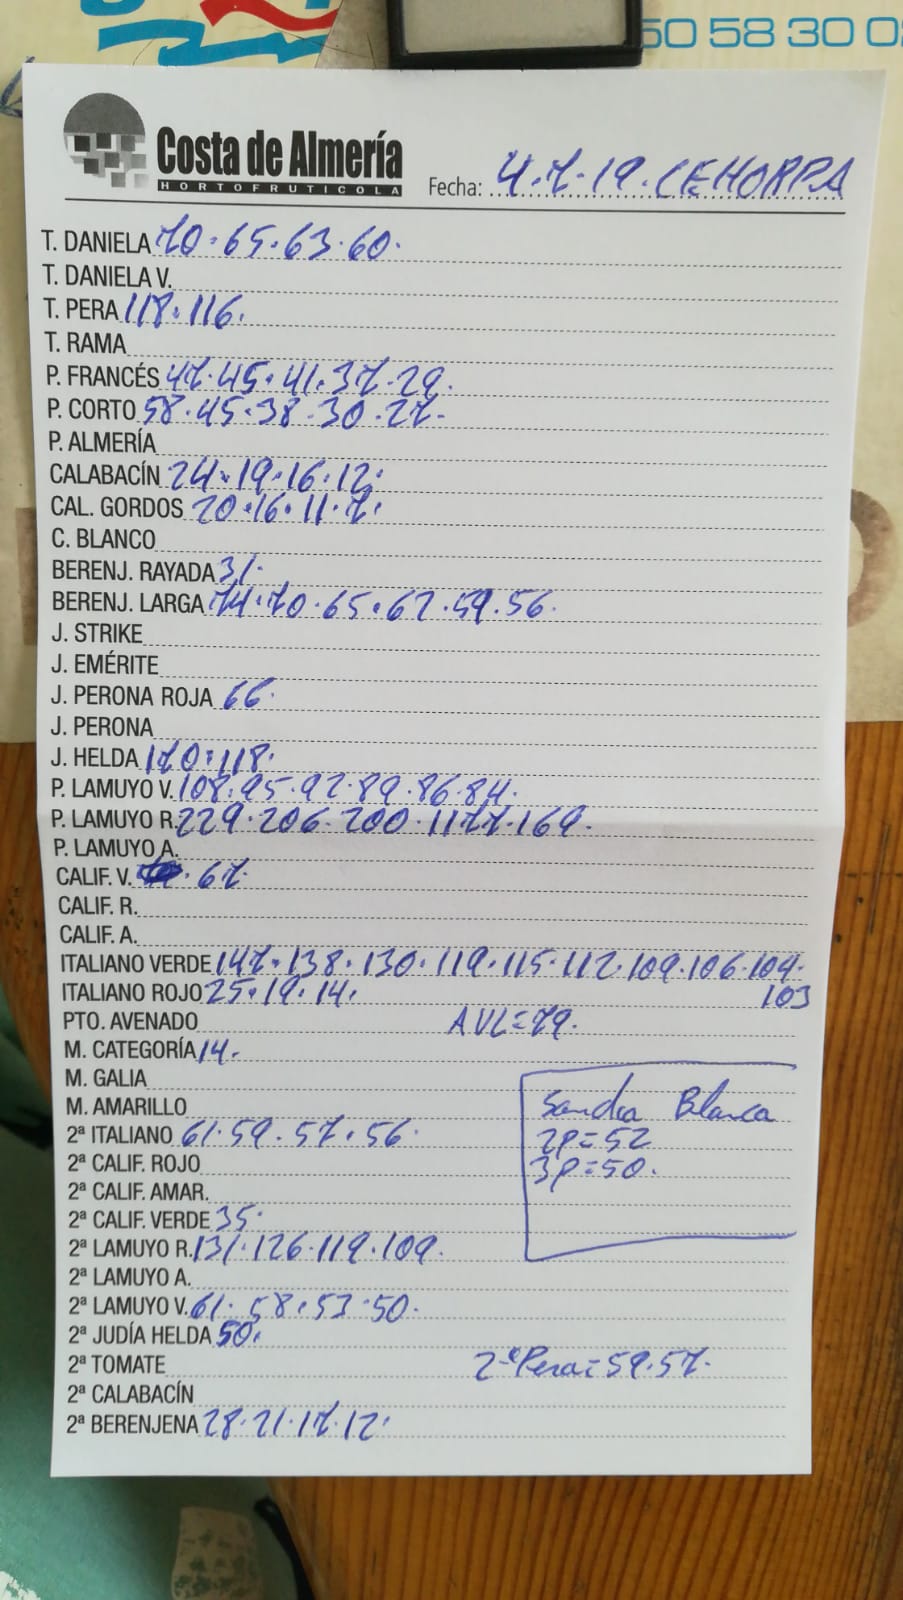 50 58 30 0
Costa de Almería
HORTOFRUTICOLA
Fecha: 4.7.19. CEHORPA
T. DANIELA 70.65.63.60.
T. DANIELA V.
T. PERA 118.116.
T. RAMA
P. FRANCÉS 47.45.41.37.29.
P. CORTO 58.45.38.30.27.
P. ALMERÍA
CALABACÍN 24.19.16.12.
CAL. GORDOS 20.16.11.7.
C. BLANCO
BERENJ. RAYADA 31.
BERENJ. LARGA 74.70.65.62.59.56.
J. STRIKE
J. EMÉRITE
J. PERONA ROJA 66.
J. PERONA
J. HELDA 170.118.
P. LAMUYO V. 108.95.92.89.86.84.
P. LAMUYO R. 229.206.200.177.169.
P. LAMUYO A.
CALIF. V. 67
CALIF. R.
CALIF. A.
ITALIANO VERDE 147.138.130.119.115.112.109.106.104.
ITALIANO ROJO 25.19.14. 103
PTO. AVENADO AVL=79.
M. CATEGORÍA 14.
M. GALIA
M. AMARILLO Sandia Blanca
2ª ITALIANO 61.59.57.56. 2P=52
2ª CALIF. ROJO 3P=50.
2ª CALIF. AMAR.
2ª CALIF. VERDE 35.
2ª LAMUYO R. 131.126.119.109.
2ª LAMUYO A.
2ª LAMUYO V. 61.58.53.50.
2ª JUDÍA HELDA 50.
2ª TOMATE 2ª Pera=59.57.
2ª CALABACÍN
2ª BERENJENA 28.21.17.12.